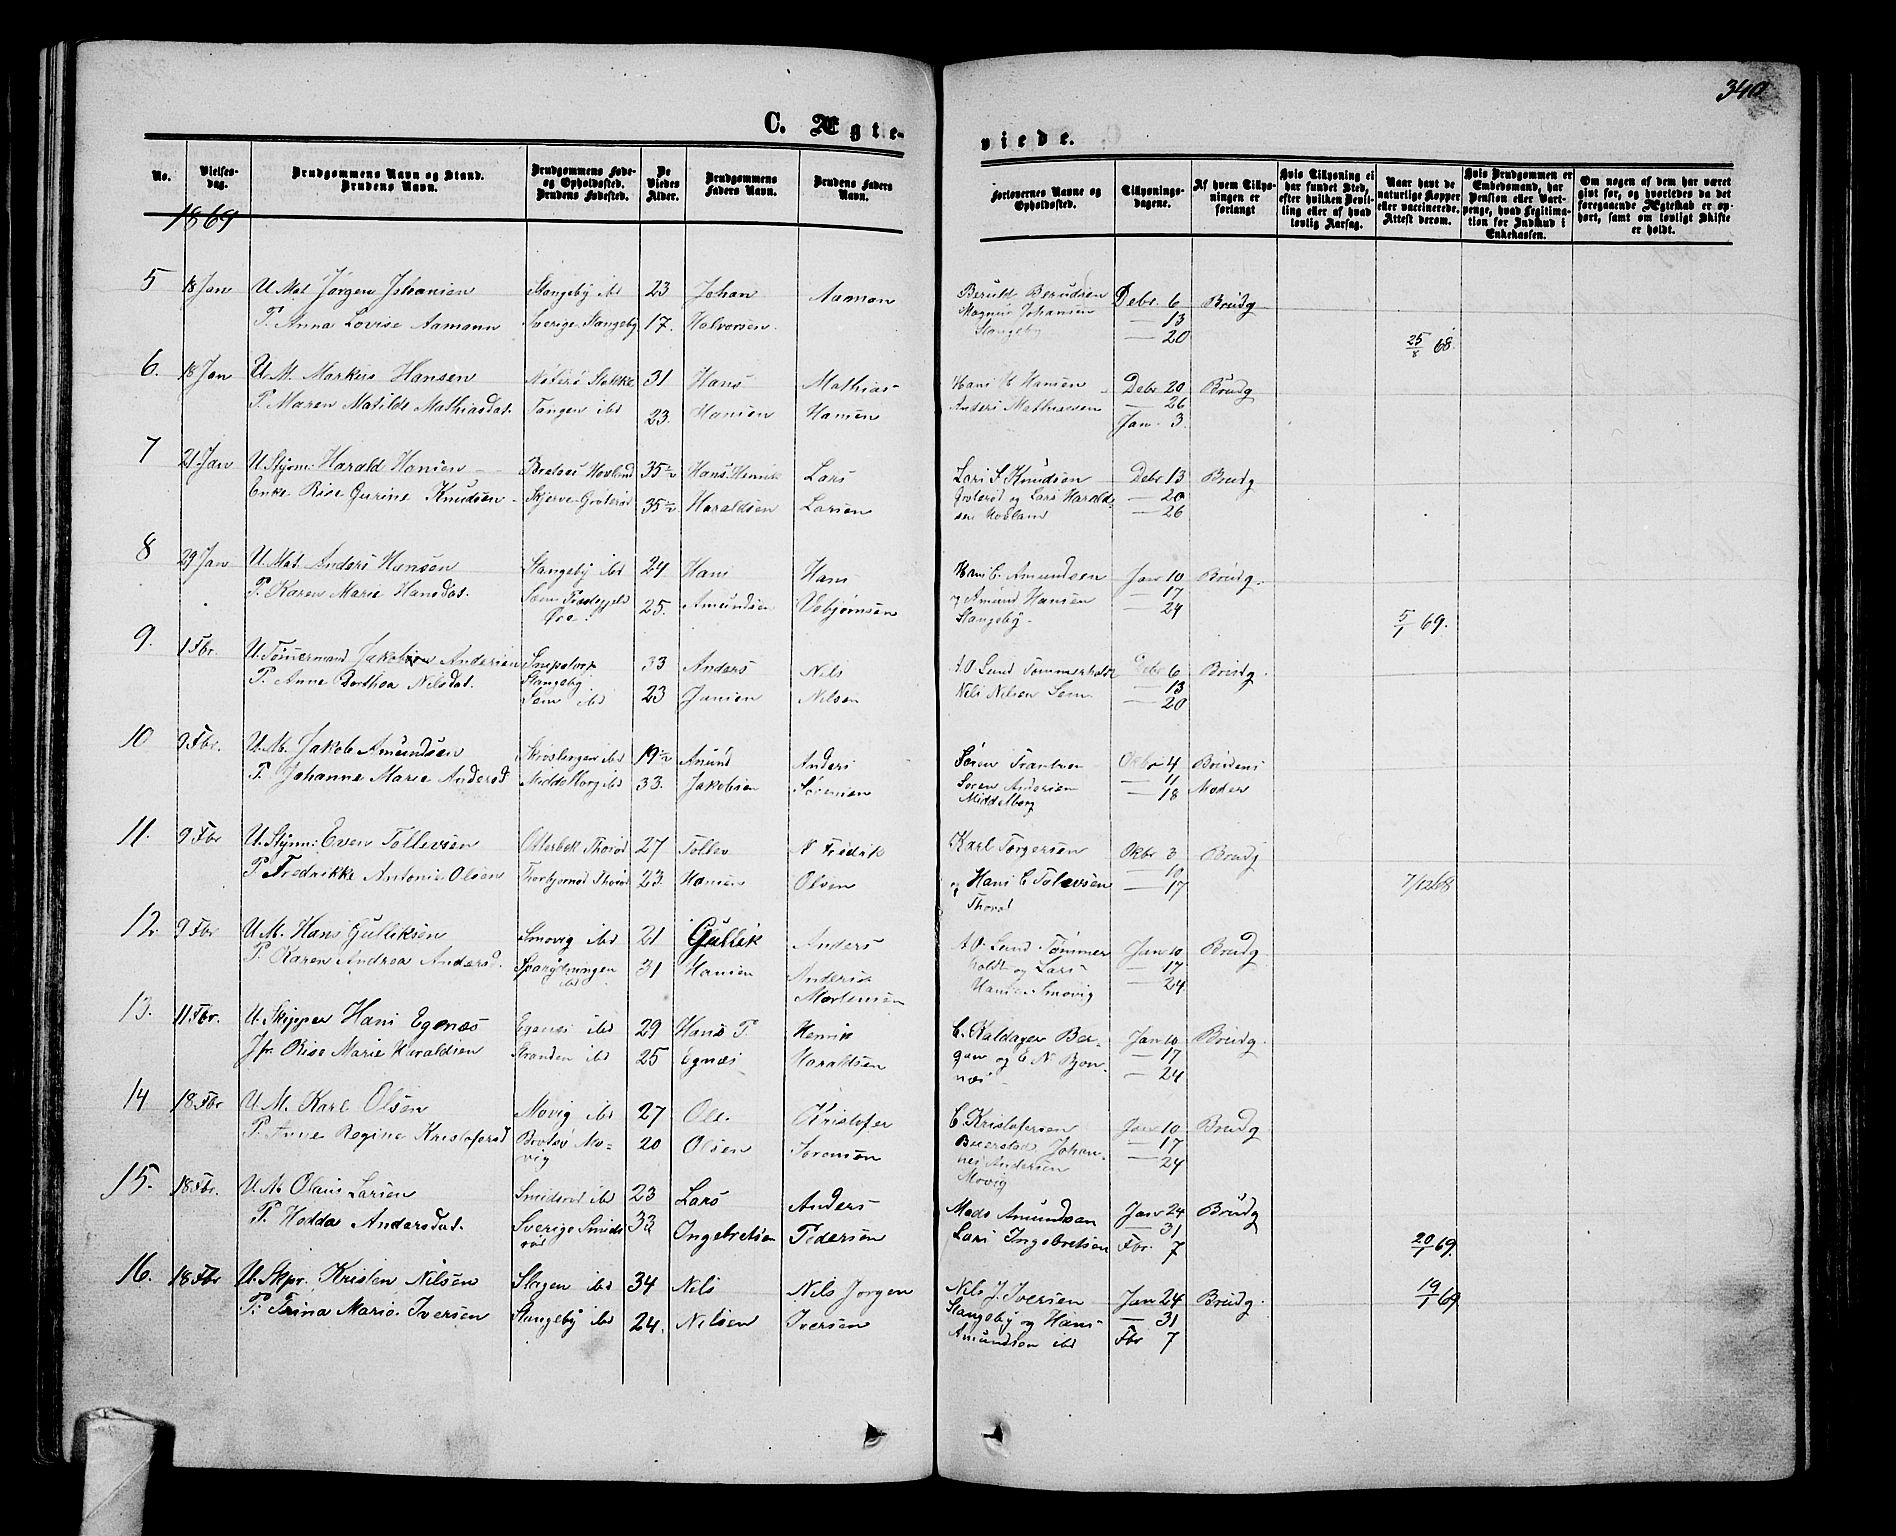 340
C. Ægte-
viede.
No.
Vielses-
dag.
Brudgommens Navn og Stand.
Brudens Navn.
Brudgommens Føde-
og Opholdssted.
Brudens Fødested.
De
Viedes
Alder.
Brudgommens
Faders Navn.
Brudens Faders
Navn.
Forlovernes Navne og
Opholdssted.
Tillysnings-
dagene.
Af hvem Tillys-
ningen er
forlangt
Hvis Tillysning ei
har fundet Sted,
efter hvilken Bevil-
ling eller af hvad
lovlig Aarsag.
Naar havt de
naturlige Kopper
eller vaccinerede.
Attest derom.
Hvis Brudgommen er
Embedsmand, har
Pension eller Vart-
penge, hvad Legitima-
tion for Indskud i
Enkekassen.
Om nogen af dem har været
gift før, og hvorledes da det
foregaaende Ægteskab er op-
hørt, samt om lovligt Skifte
er holdt.
1869
5 18 Jan U. Mat Jørgen Johansen Slangeby ibd 23 Johan Aamon Berult Berudsen Debr 6 Brudg
P. Anna Lovise Aamonn Sverige Slangeby 17. Halvorsen. Magnus Johansen — 13
Slangeby — 20 25/8 68.
6. 18 Jan U. M. Markus Hansen Nøterø Stokke 31 Hans Mathias Hans H Hansen Debr 20 Brudg
P. Maren Matilde Mathiasdat. Tangen ibd 23. Hansen Hansen Anders Mathiasen — 26
Jan. 3.
7 21 Jan U. Styrm: Harald Hansen Bratøs Hovland 35½ Hans Henrik Lars Lars S Knudsen Debr 13 Brudg
Enke Rise Gurine Knudsen Skjerve Groterød 35½ Haraldsen Larsen Groterød og Lars Harald- — 20
sen Hovland — 26
8 29 Jan U. Mat. Anders Hansen Slangeby ibd 24 Hans Hans Hans C Amundsen Jan 10 Brudg.
P. Karen Marie Hansdat. Sem Præstegjeld 25. Amundsen Vebjørnsen og Amund Hansen — 17
Øra. Slangeby. — 24 5/1 69.
9. 1 Fbr. U. Tømermand Jakob Andersen 33 Anders Nils A. O. Lund Tømmerholt Debr 6 Brudg.
P. Anne Dorthea Nilsdat. Slangeby Sem ibd 23 Jansen Nilsen Nils Nilsen Sem — 13
— 20
10 9 Fbr. U. M. Jakob Amundsen ibd 19½ Amund Anders Søren Frantsen Oktbr 4 Brudens
P. Johanne Marie Andersd Middelborg ibd 33. Jakobsen Sørensen Søren Andersen — 11 Moder
Middelborg — 18
11. 9 Fbr U. Styrm: Even Tollevsen Otterbek Thorød 27 Tollev Fredrik Karl Torgersen Okbr 3 Brudg
P. Fredrikke Antonie Olsen Thorbjørnsd Thorød 23. Hansen Olsen og Hans C Tolevsen — 10
Thorød — 17 7/12 68
12. 9 Fbr U. M. Hans Gulliksen Smovig ibd 21 Gullik Anders A. O. Lund Tømmer Jan 10 Brudg
P. Karen Andrea Andersd. ibd 31 Hansen Anderse holdt og Lars — 17
Mortensen Hanse Smovig — 24
13. 11 Fbr. U. Skipper Hans Egenæs Egenæs ibd 29 Hans P. Henrik C. Kaldager Ber- Jan 10 Brudg.
Jfr. Rise Marie Haraldsen Stranden ibd 25 Egnæs Haraldsen gan og E N Bjon- — 17
næs — 24
14 18 Fbr U. M. Karl Olsen Movig ibd 27 Ole. Kristofer C. Kristofersen Jan 10 Brudg
P. Anne Regine Kristofersd Brotsø Mo- 20 Olsen Sørensen Beierstad Johan- — 17
vig nes Andersen — 24
Movig
15. 18 Fbr. U. M. Olaus Larsen Smiderød ibd 23 Lars Anders Mads Amundsen Jan 24 Brudg
P. Hedda Andersdat. Sverige Smide- 33 Ingebretsen Pedersen Lars Ingebretsen — 31
rød Fbr. 7 20/1 69.
16. 18 Fbr U. Skpr. Kristen Nilsen Slagen ibd 34 Nils Nils Jørgen Nils J. Iversen Jan 24 Brudg. 19/1 69
P. Trina Marie Iversen Slangeby ibd 24. Nilsen Iversen Slangeby og Hans — 31
Amundsen ibd Fbr 7